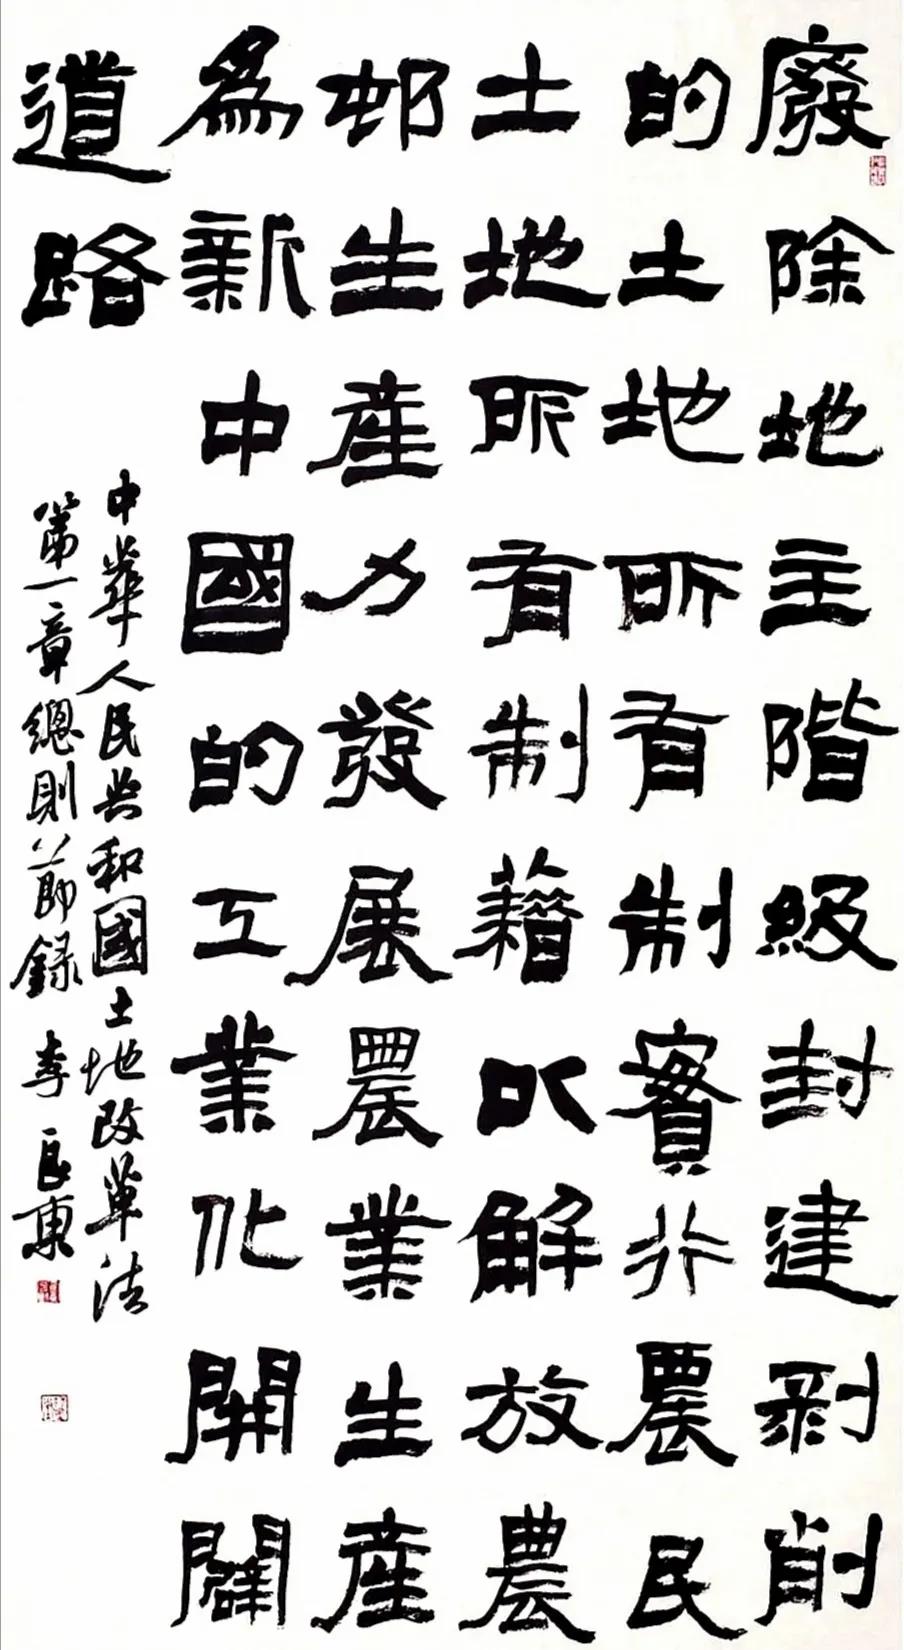 廢除地主階級封建剥削
的土地所有制實行農民
土地所有制藉以解放農
邨生產力發展農業生產
為新中國的工業化開闢
道路
中華人民共和國土地改革法
第一章總則節錄 李良東